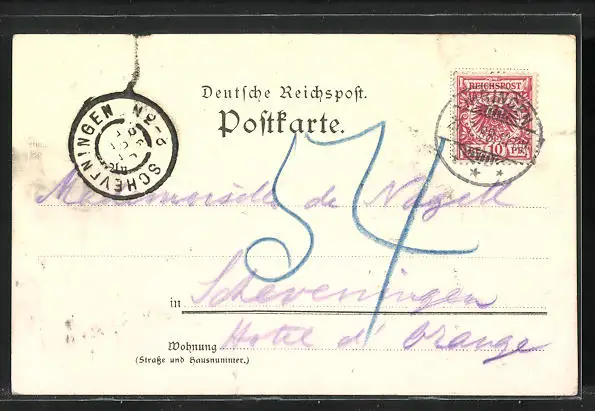 Deutsche Reichspost.
Postkarte.
REICHSPOST
10 PF.
SCHEVENINGEN
Mademoiselle de Nagell
54
in Scheveningen
Wohnung Hotel d'Orange
(Straße und Hausnummer.)